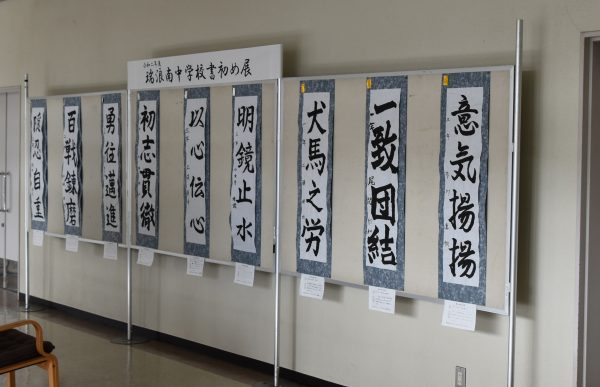 令和二年度
瑞浪南中学校書初め展
意気揚揚
一致団結
犬馬之労
明鏡止水
以心伝心
初志貫徹
勇往邁進
百戦錬磨
隠忍自重